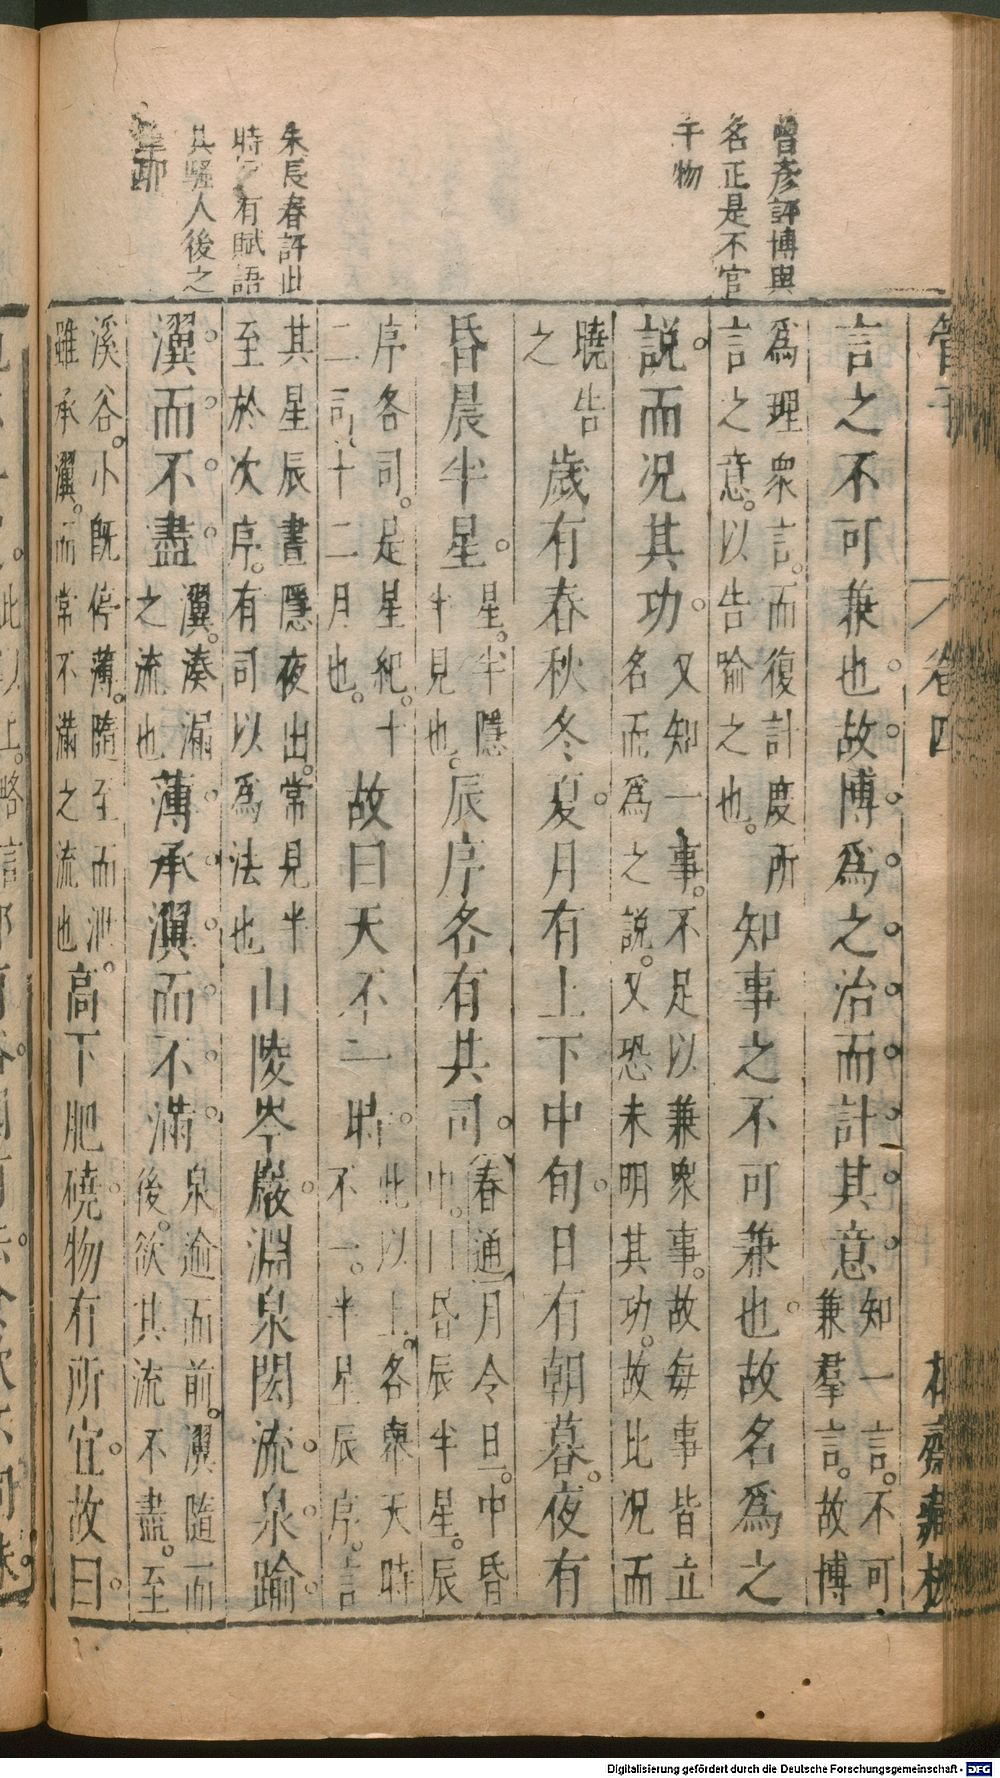 曾彥評博與
名正是不官
于物
朱長春評此
時 有賦語
其騷人後之
耶
管子 卷四
言之不可兼也。故博為之治而計其意。知一言。不可
兼羣言。故博
為理衆言。而復計度所
言之意。以告喻之也。
知事之不可兼也。故名為之
說。而况其功。又知一事。不足以兼衆事。故每事皆立
名而為之說。又恐未明其功。故比况而
曉告
之
歲有春秋冬夏。月有上下中旬。日有朝暮。夜有
昏晨半星。星。半隱
半見也。
辰序各有其司。春通月令旦。中昏
中。日昏辰半星。辰
序各司。是星紀。十
二司。十二月也。
故曰天不一時。此以上。各舉天時
不一。半星辰序。言
其星辰晝隱夜出。常見半
至於次序。有司以為法也
山陵岑巖。淵泉閎流。泉踰
瀷而不盡。瀷。湊漏
之流也
薄承瀷而不滿。泉逾而前。瀷隨而
後。欲其流不盡。至
溪谷。小既停薄。隨至而泄。
雖承瀷。而常不滿之流也
高下肥磽。物有所宜。故曰。
Digitalisierung gefördert durch die Deutsche Forschungsgemeinschaft - DFG